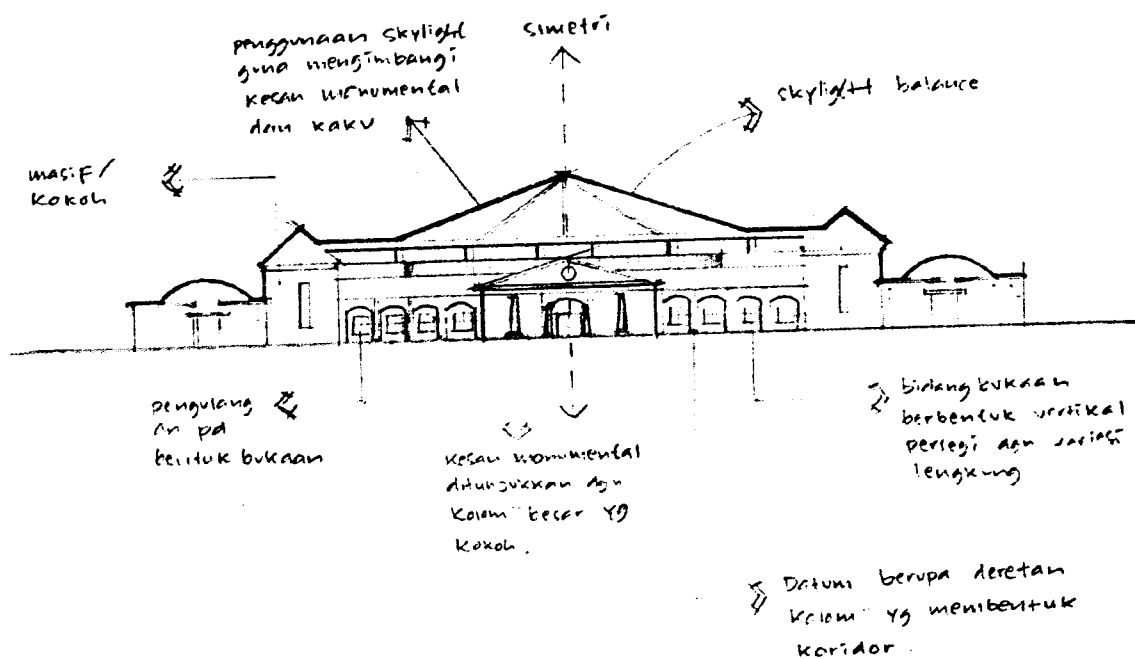 penggunaan skylight
guna mengimbangi
kesan monumental
dan kaku
simetri
skylight balance
masif/
kokoh
pengulang
an pd
bentuk bukaan
kesan monumental
ditunjukkan dgn
kolom" besar yg
kokoh.
bidang bukaan
berbentuk vertikal
persegi dgn variasi
lengkung
Datum berupa deretan
kolom" yg membentuk
koridor.